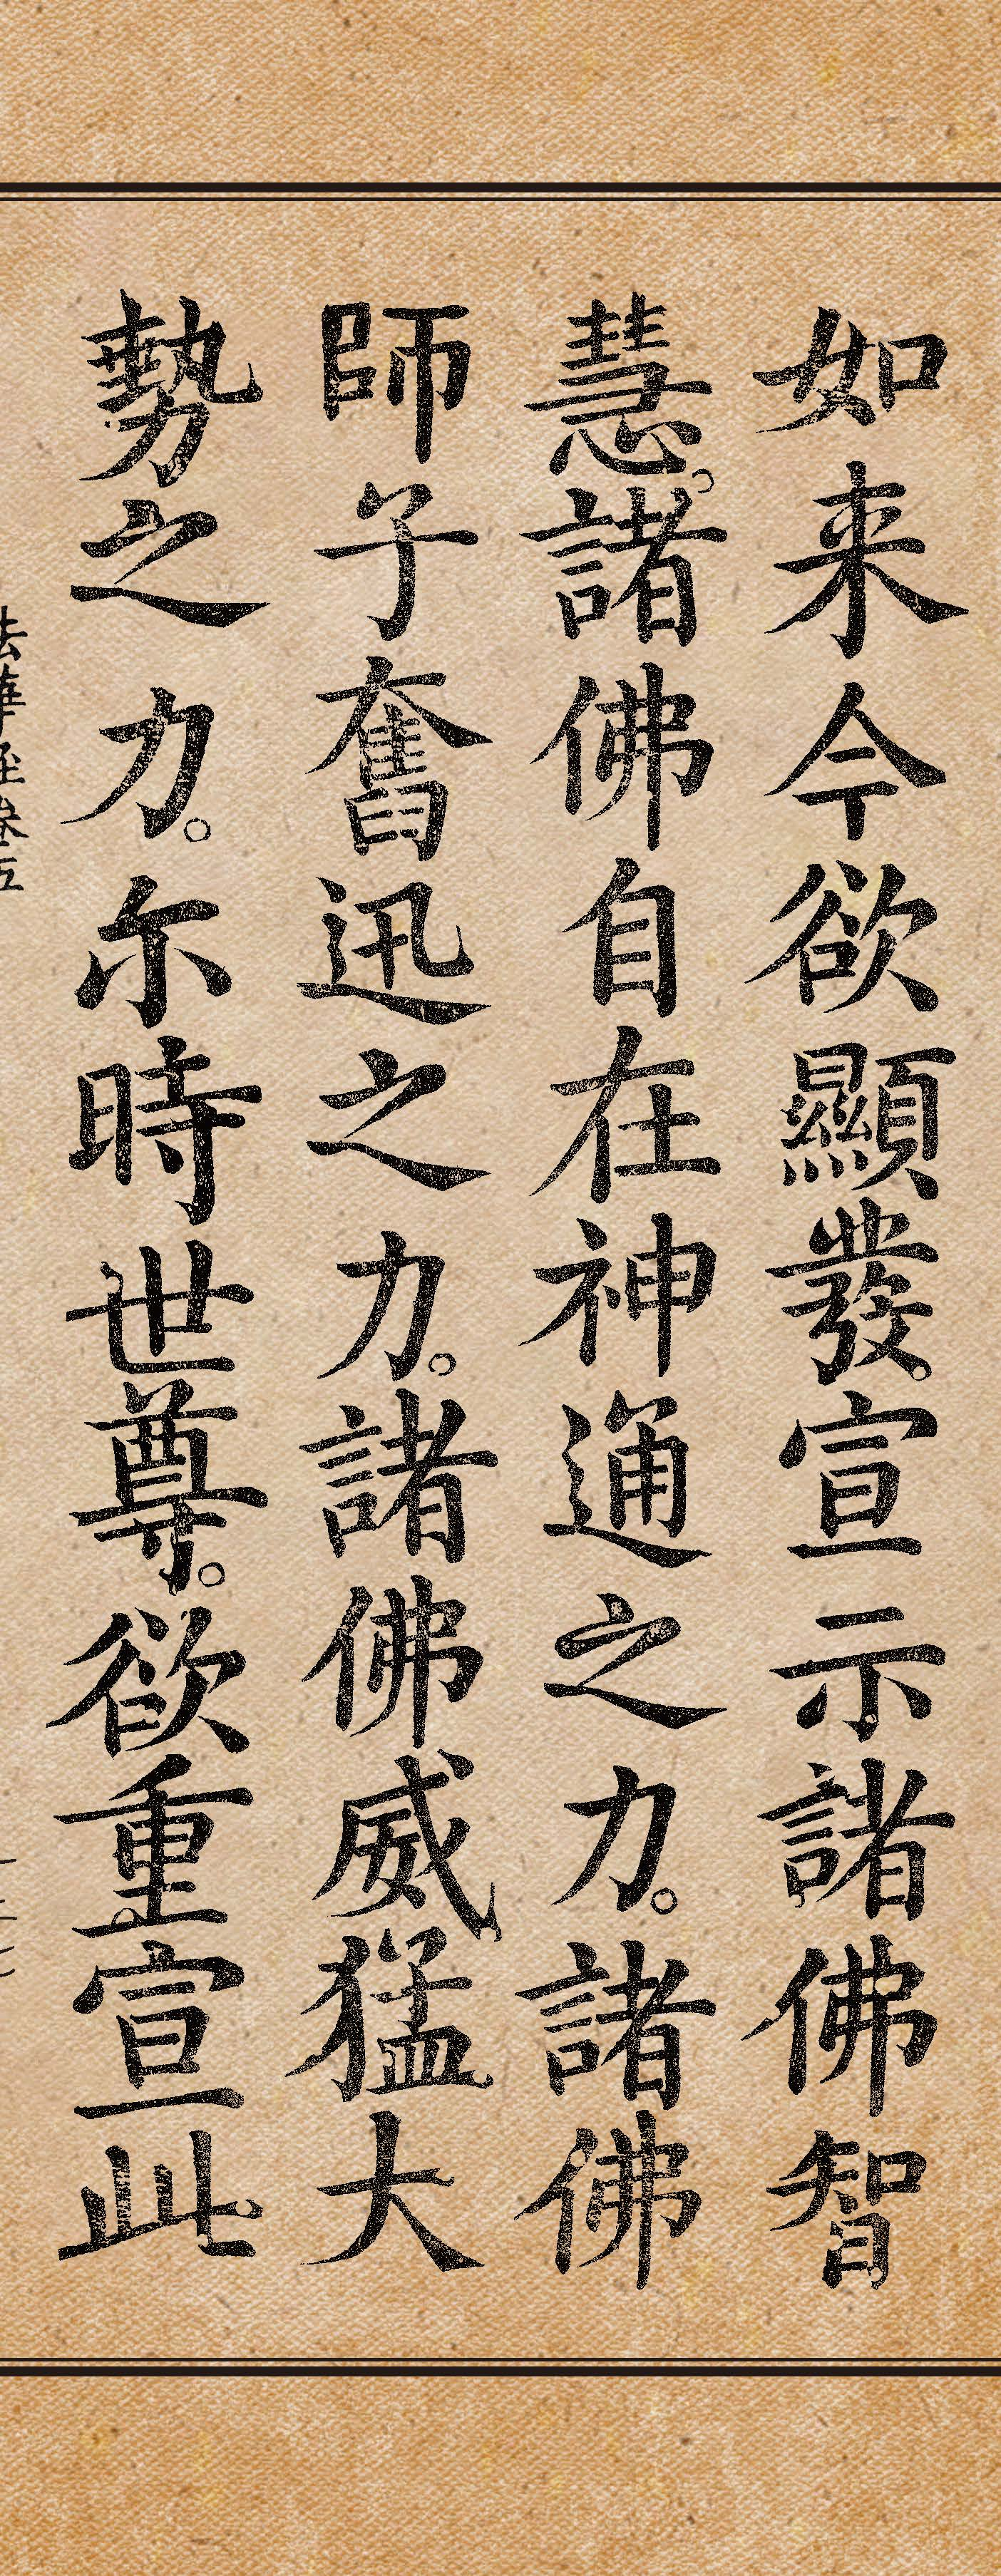 如来今欲顯發。宣示諸佛智
慧。諸佛自在神通之力。諸佛
師子奮迅之力。諸佛威猛大
勢之力。尓時世尊。欲重宣此
法華經卷五